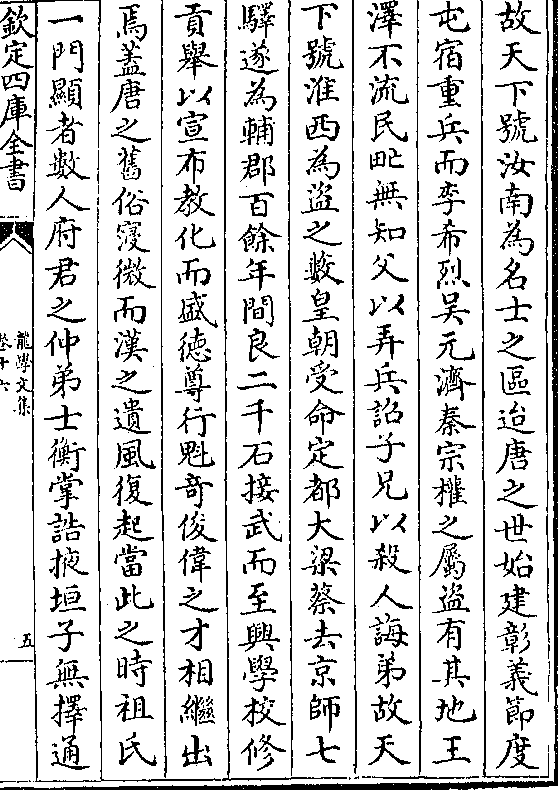 故天下號汝南為名士之區迨唐之世始建彰義節度
屯宿重兵而李希烈吳元濟秦宗權之屬盜有其地王
澤不流民甿無知父以弄兵詔子兄以殺人誨弟故天
下號淮西為盜之藪皇朝受命定都大梁蔡去京師七
驛遂為輔郡百餘年間良二千石接武而至興學校修
貢舉以宣布教化而盛德尊行魁奇俊偉之才相繼出
焉蓋唐之舊俗寖微而漢之遺風復起當此之時祖氏
一門顯者數人府君之仲弟士衡掌誥掖垣子無擇通
欽定四庫全書
龍學文集
卷十六
五